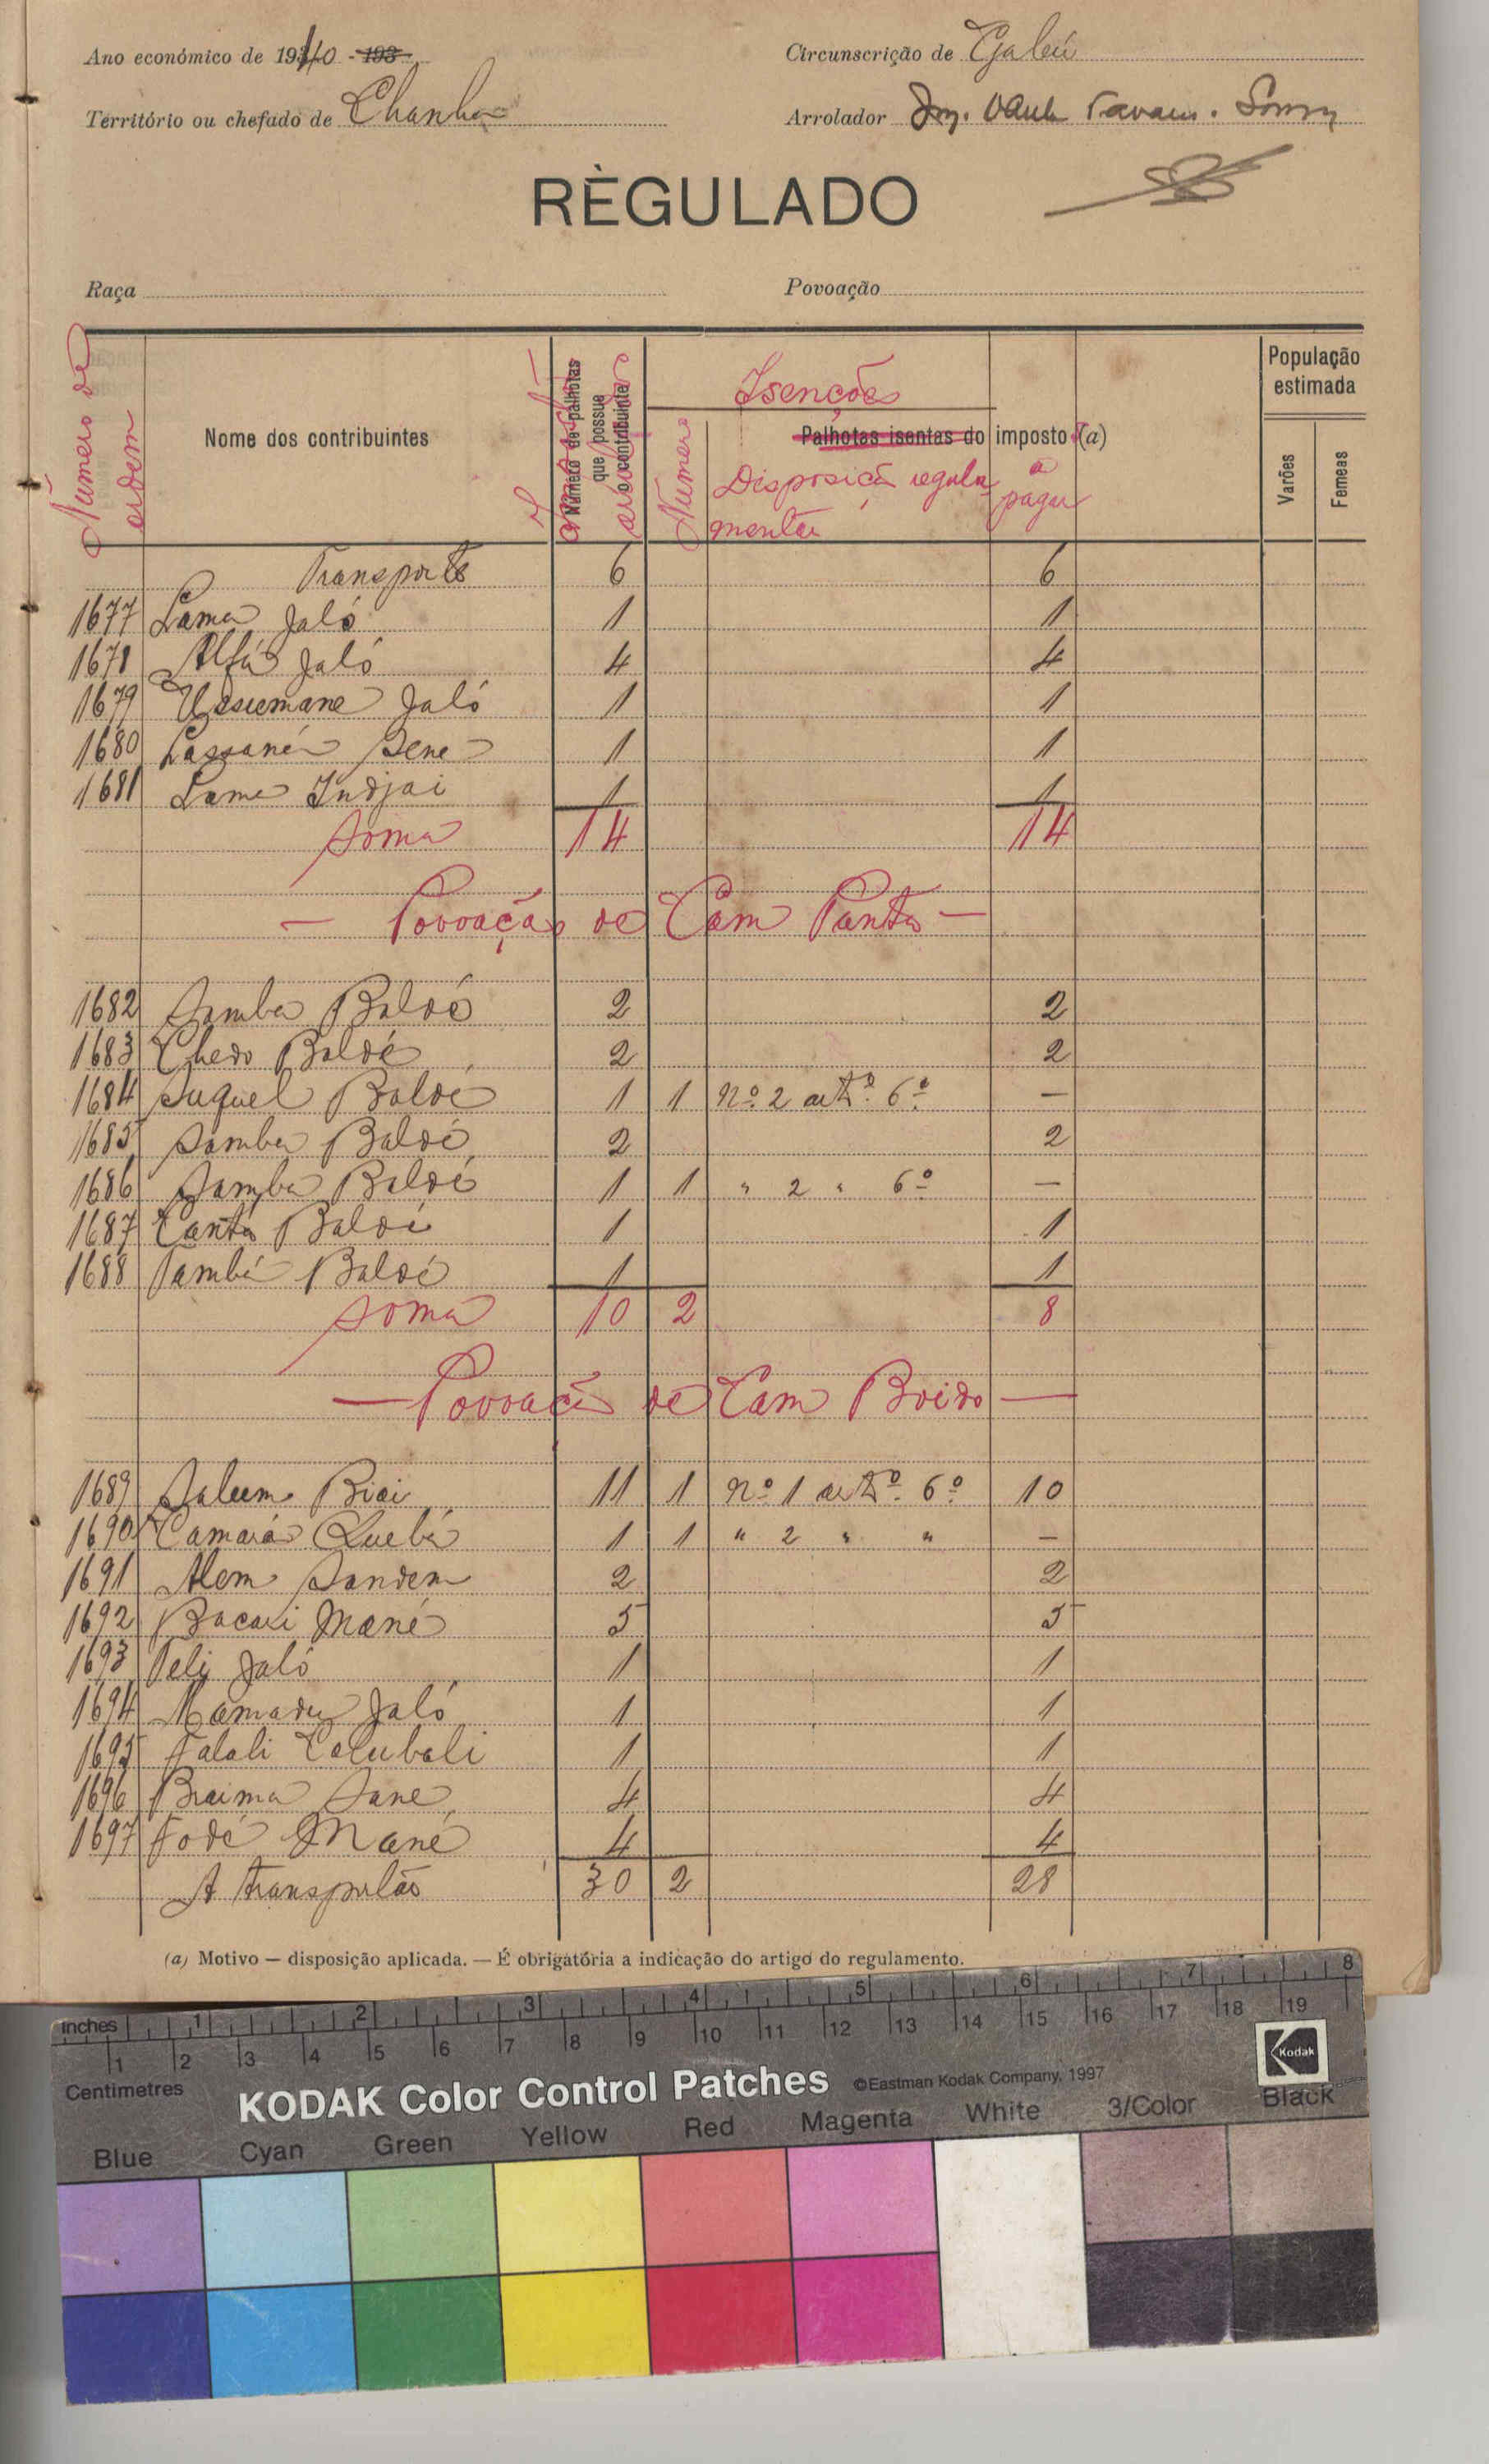 Ano económico de 1940 - 193
Circunscrição de Gabú
Território ou chefado de Chanha
Arrolador
RÈGULADO
Raça
Povoação
Número de ordem
Nome dos contribuintes
Número de palhotas que possue o contribuinte
Isenções
Número
Palhotas isentas do imposto (a)
Disposição regulamentar
a pagar
População estimada
Varões
Femeas
Transporte 6 6
1677 Lama Jaló 1 1
1678 Alfá Jaló 4 4
1679 Ussumane Jaló 1 1
1680 Lassana Sene 1 1
1681 Lama Indjai 1 1
Soma 14 14
— Povoação de Cam Panta —
1682 Samba Baldé 2 2
1683 Chedo Baldé 2 2
1684 Suquel Baldé 1 1 nº 2 artº. 6º —
1685 Samba Baldé 2 2
1686 Samba Baldé 1 1 " 2 " 6º —
1687 Canta Baldé 1 1
1688 Sambá Baldé 1 1
Soma 10 2 8
— Povoação de Cam Boido —
1689 Salum Biai 11 1 nº 1 artº. 6º 10
1690 Camará Quebá 1 1 " 2 " " —
1691 Alem Sandem 2 2
1692 Bacari Mané 5 5
1693 Peli Jaló 1 1
1694 Mamadu Jaló 1 1
1695 Talali Colubali 1 1
1696 Braima Sane 4 4
1697 Fodé Mané 4 4
A transportar 30 2 28
(a) Motivo — disposição aplicada. — É obrigatória a indicação do artigo do regulamento.
inches 1 2 3 4 5 6 7 8
1 2 3 4 5 6 7 8 9 10 11 12 13 14 15 16 17 18 19
Centimetres
KODAK Color Control Patches ©Eastman Kodak Company, 1997
Kodak
Blue Cyan Green Yellow Red Magenta White 3/Color Black